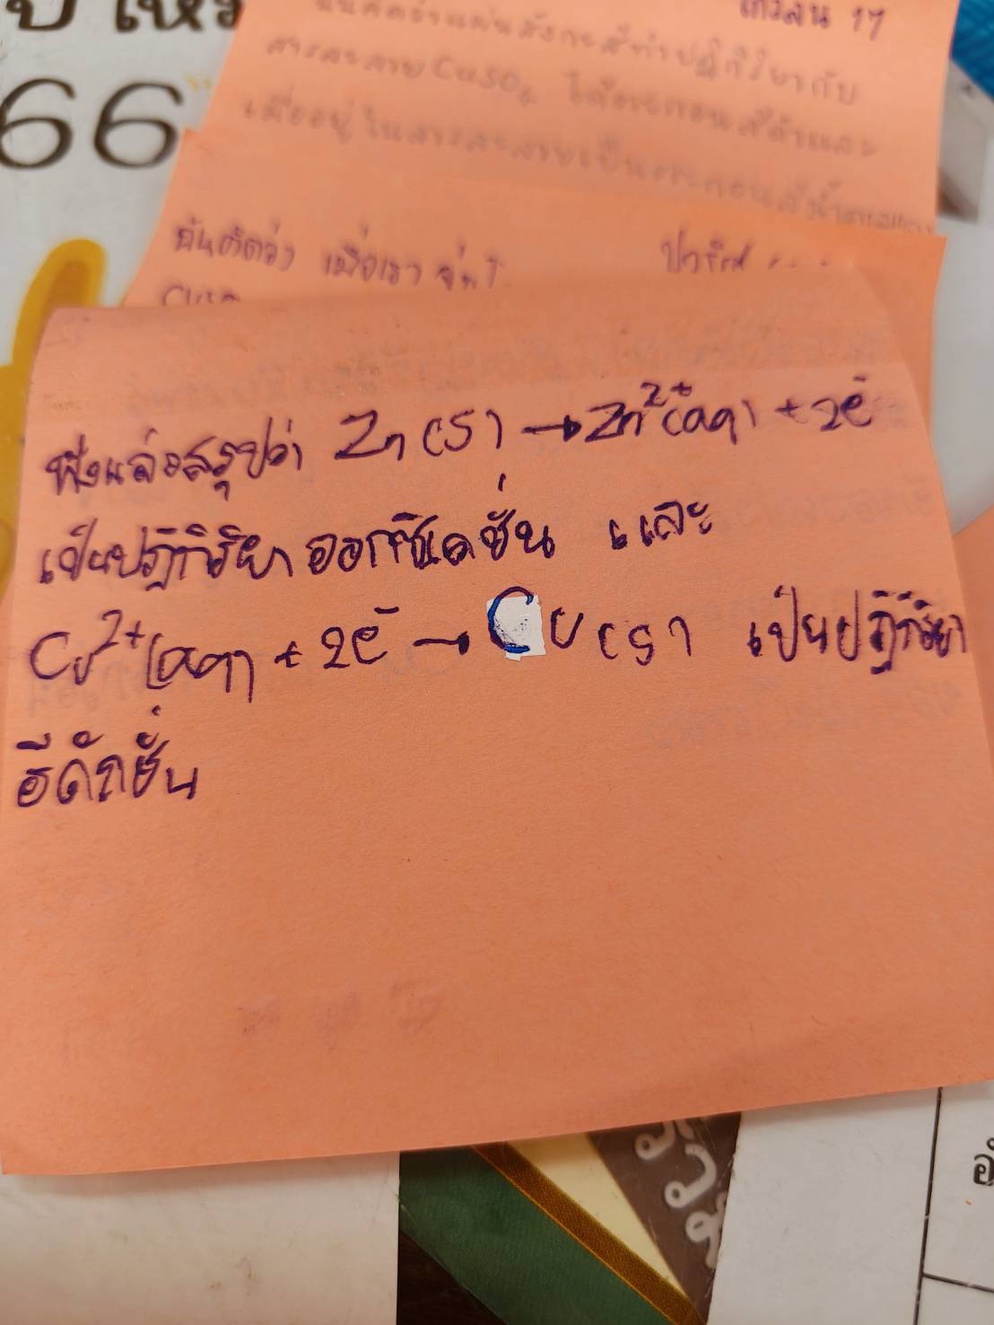 66
เกวลิน 17
ฉันคิดว่าแผ่นสังกะสีทำปฏิกิริยากับ
สารละลาย CuSO₄ ได้ตะกอนสีดำและ
เมื่ออยู่ในสารละลายเป็นตะกอนสีน้ำตาลแดง
ฉันคิดว่า เมื่อเรา จุ่ม
ฟังแล้วสรุปว่า Zn (s) → Zn²⁺(aq) + 2e⁻
เป็นปฏิกิริยา ออกซิเดชั่น และ
Cu²⁺(aq) + 2e⁻ → Cu (s) เป็นปฏิกิริยา
รีดักชั่น